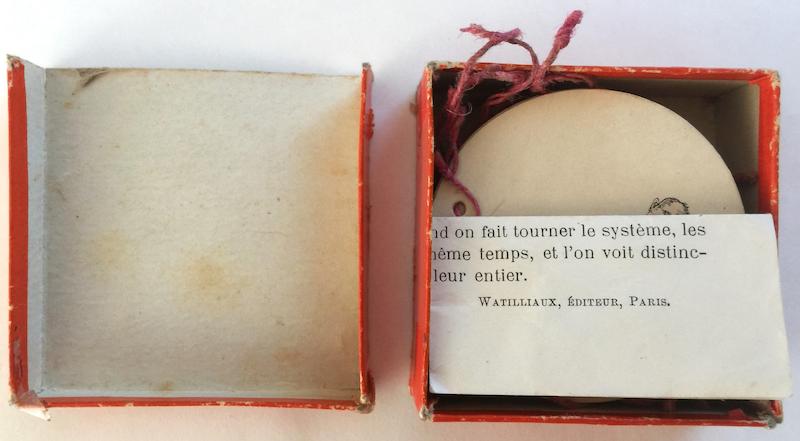 nd on fait tourner le système, les
ême temps, et l'on voit distinc-
leur entier.
Watilliaux, éditeur, Paris.